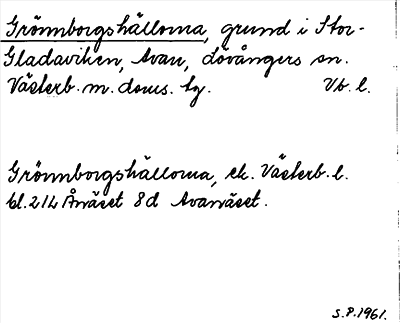 Grönnborgshällorna, grund i Stor-
Gladaviken, Avan, Lövångers sn.
Västerb. m. doms. tg. Vb. l.
Grönnborgshällorna, ek. Västerb. l.
bl. 21L Ånäset 8d Avanäset.
S.P. 1961.